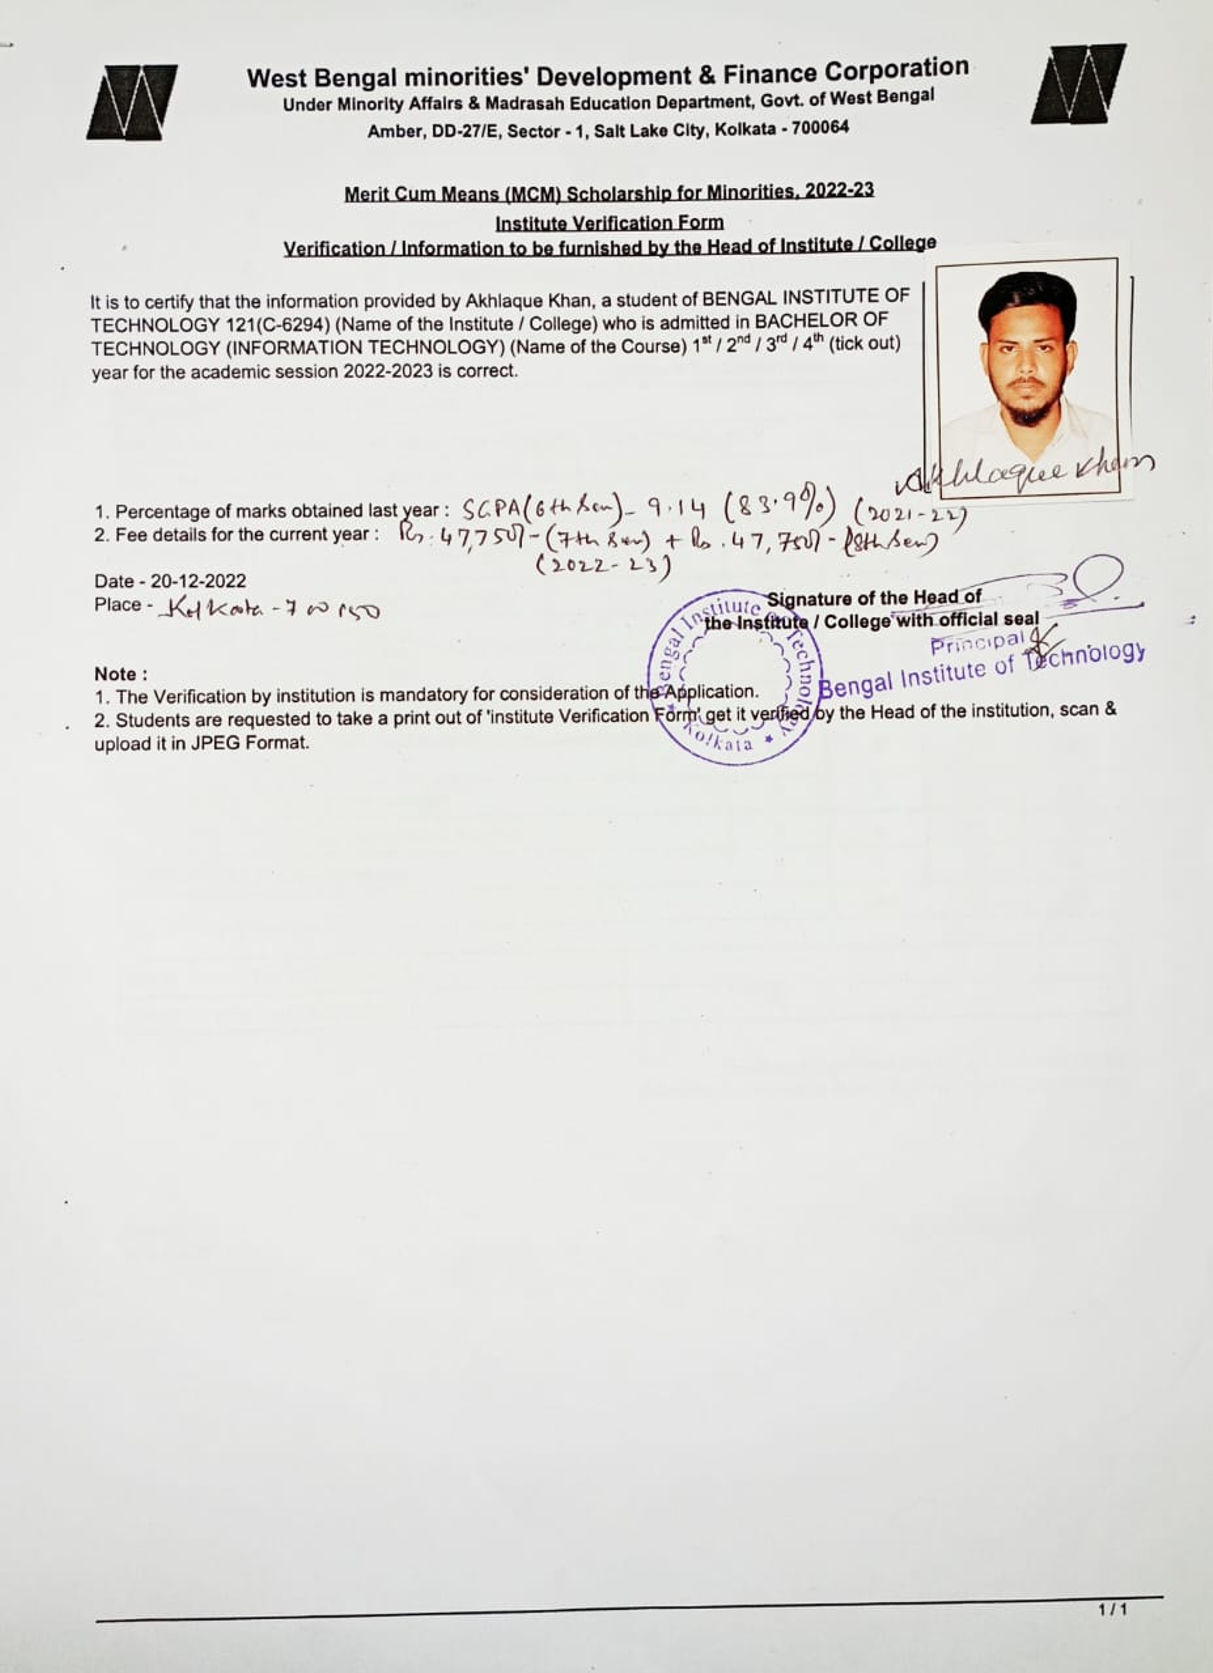 West Bengal minorities' Development & Finance Corporation
Under Minority Affairs & Madrasah Education Department, Govt. of West Bengal
Amber, DD-27/E, Sector - 1, Salt Lake City, Kolkata - 700064
Merit Cum Means (MCM) Scholarship for Minorities, 2022-23
Institute Verification Form
Verification / Information to be furnished by the Head of Institute / College
It is to certify that the information provided by Akhlaque Khan, a student of BENGAL INSTITUTE OF
TECHNOLOGY 121(C-6294) (Name of the Institute / College) who is admitted in BACHELOR OF
TECHNOLOGY (INFORMATION TECHNOLOGY) (Name of the Course) 1st / 2nd / 3rd / 4th (tick out)
year for the academic session 2022-2023 is correct.
Akhlaque Khan
1. Percentage of marks obtained last year : SGPA(6th Sem) - 9.14 (83.9%) (2021-22)
2. Fee details for the current year : Rs. 47,750/- (7th Sem) + Rs. 47,750/- (8th Sem)
(2022-23)
Date - 20-12-2022
Place - Kolkata - 700150
Signature of the Head of
the Institute / College with official seal
Principal
Bengal Institute of Technology
Bengal Institute of Technology
Kolkata
Note :
1. The Verification by institution is mandatory for consideration of the Application.
2. Students are requested to take a print out of 'institute Verification Form' get it verified by the Head of the institution, scan &
upload it in JPEG Format.
1 / 1